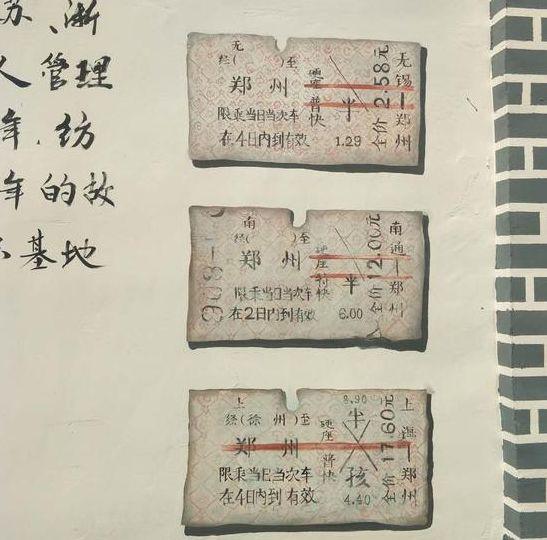 苏、浙
人管理
年、纺
年的故
基地
无
经( )至
郑州
硬座
普快
半
限乘当日当次车
在4日内到有效
1.29
全价2.58元
无锡—郑州
南
经( )至
郑州
硬座
特快
半
限乘当日当次车
在2日内到有效
6.00
全价12.00元
南通—郑州
上
经(徐州)至
郑州
硬座
普快
8.90
半
孩
限乘当日当次车
在4日内到有效
4.40
全价17.60元
上海—郑州